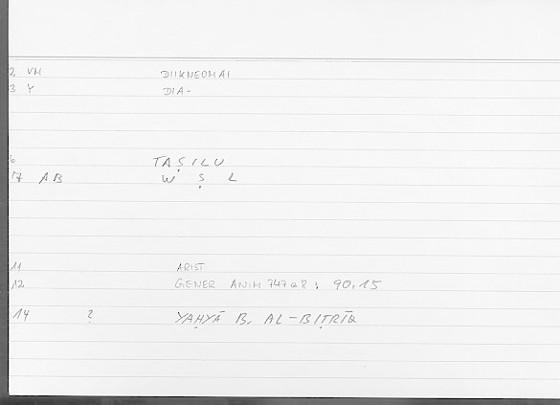 2 VM DIIKNEOMAI
3 Y DIA-
6 TAṢILU
7 AB W Ṣ L
11 ARIST
12 GENER ANIM 747a8 ; 90,15
14 ? YAḤYĀ B. AL-BIṬRĪQ